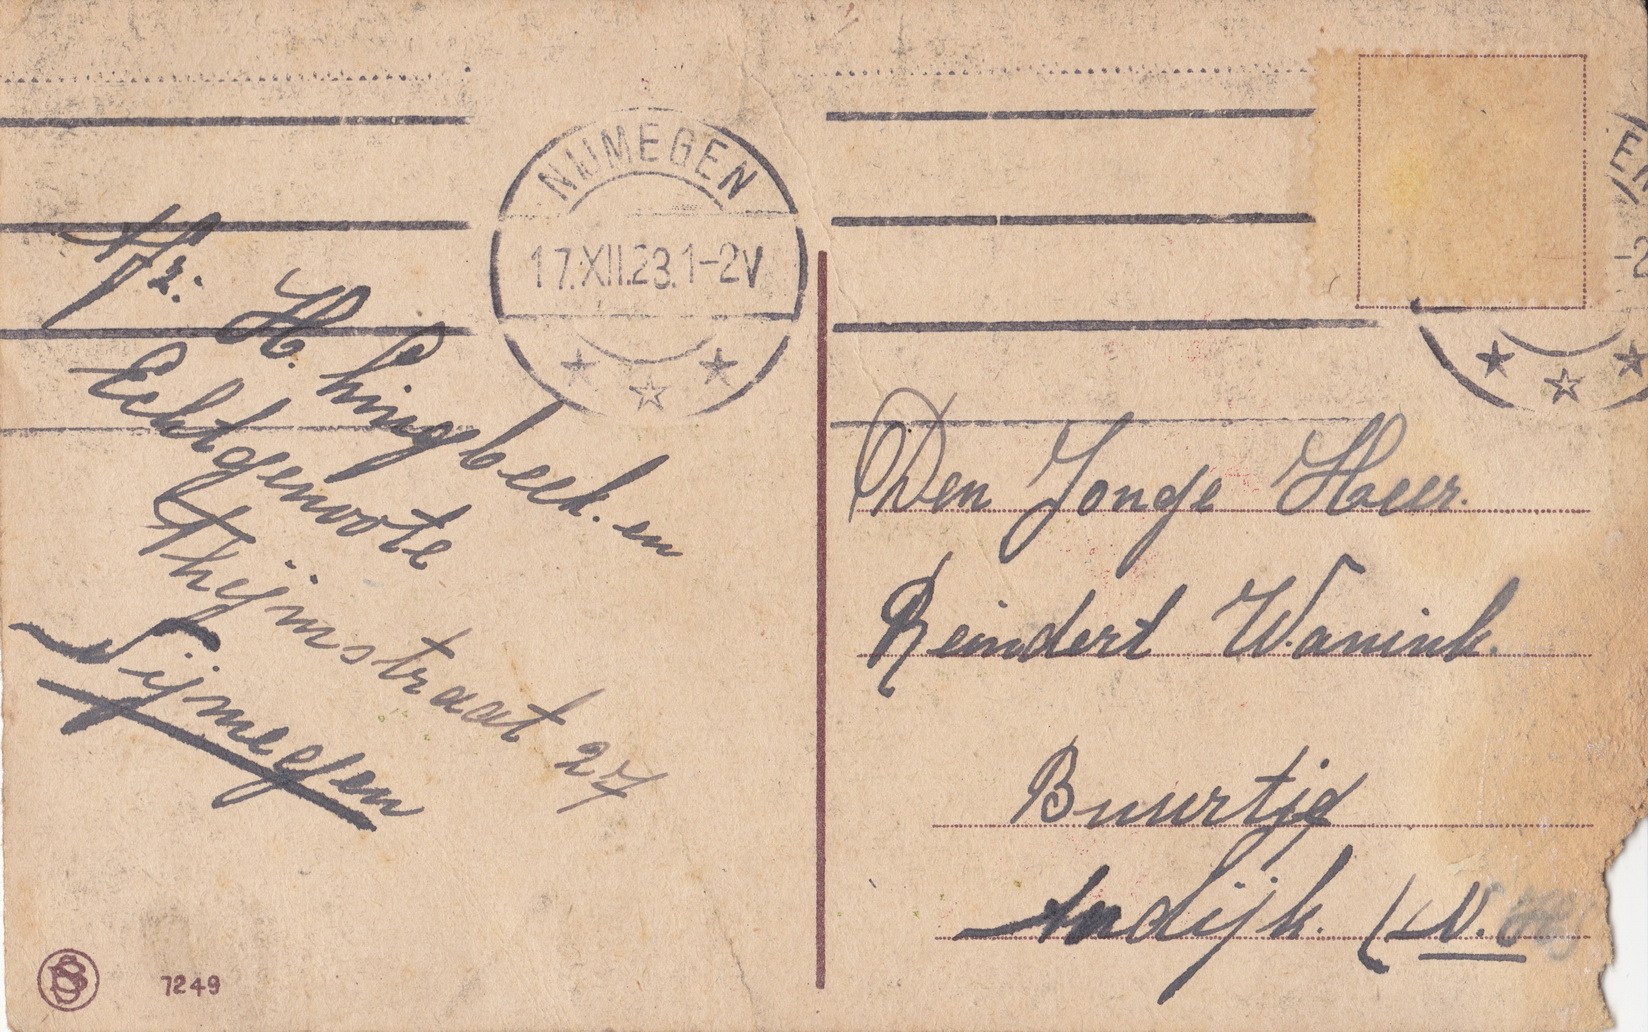 NIJMEGEN
17.XII.23.1-2V
Fr:
H. Lingbeek. en
Echtgenoote
Thijmstraat 27
Nijmegen
7249
EN
-2
Den Jonge Heer.
Reindert Wanink.
Buurtje
Andijk. (N. H